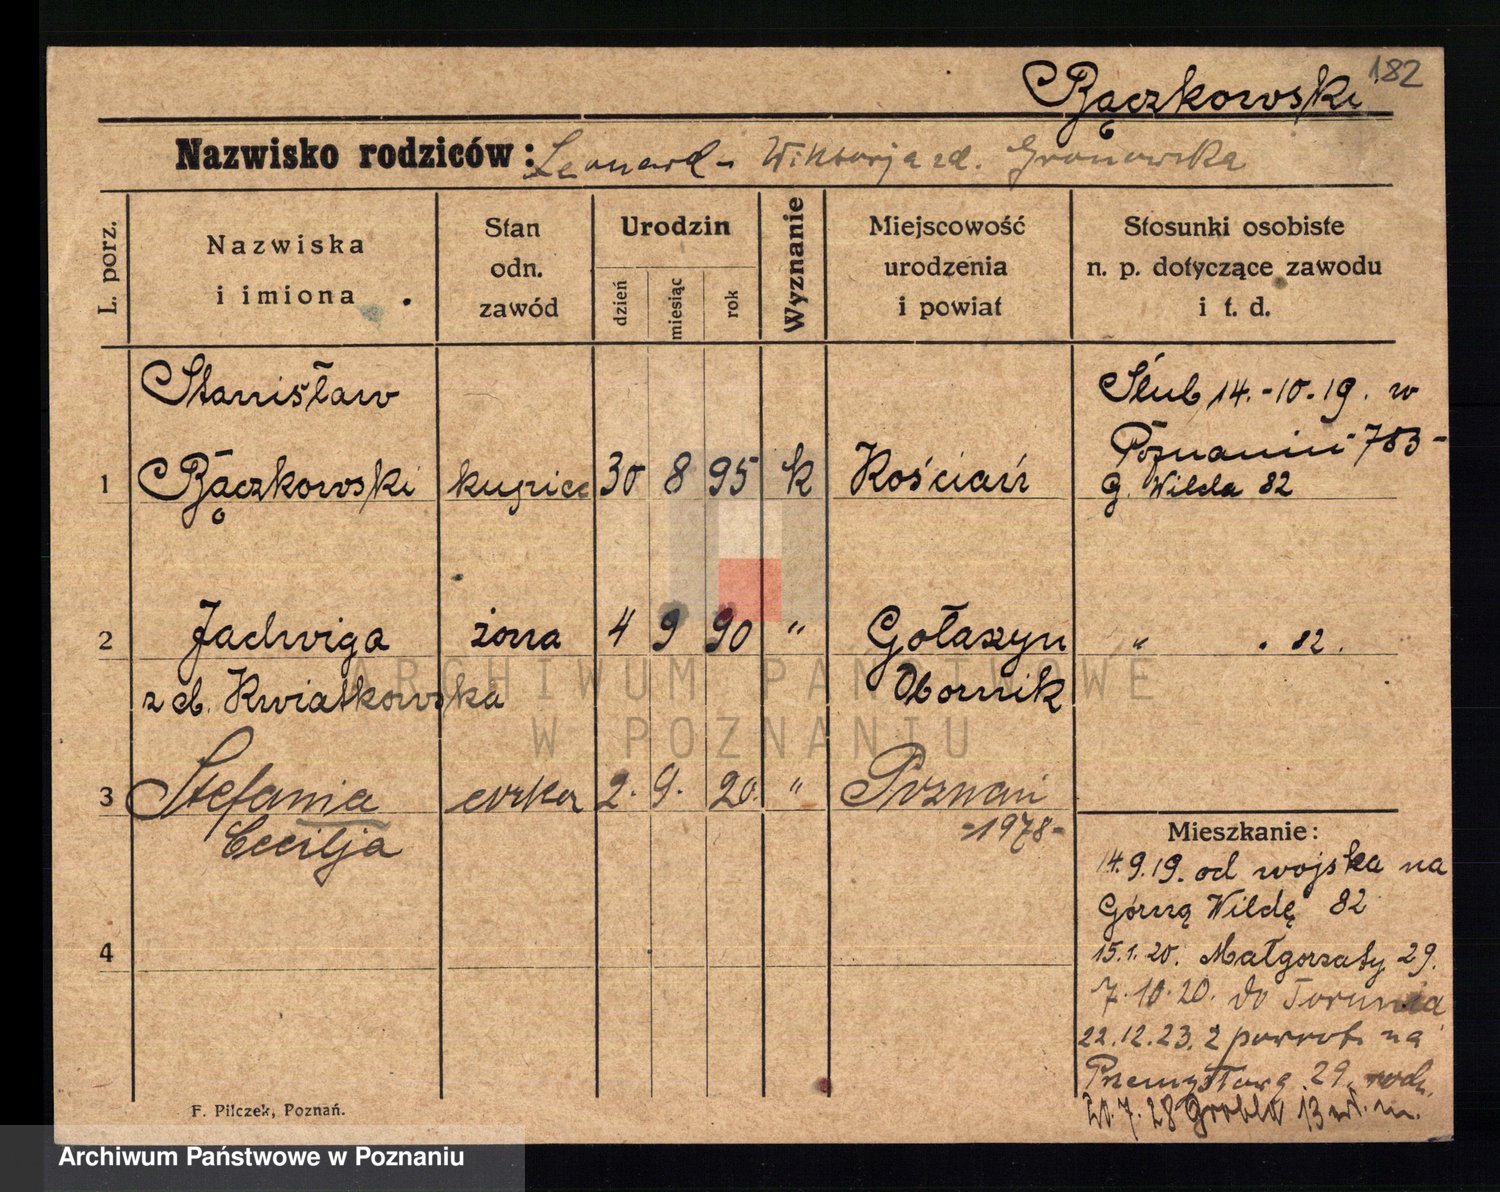 182
Bączkowski
Nazwisko rodziców: Leonard - Wiktorja zd. Gronowska
L. porz.
Nazwiska
i imiona
Stan
odn.
zawód
Urodzin
dzień
miesiąc
rok
Wyznanie
Miejscowość
urodzenia
i powiat
Stosunki osobiste
n. p. dotyczące zawodu
i t. d.
Stanisław
1 Bączkowski kupiec 30 8 95 k Kościań
Ślub 14.-10.19. w
Poznaniu 783-
G. Wilda 82
2 Jadwiga żona 4 9 90 " Gołaszyn " . 82.
z d. Kwiatkowska Obornik
3 Stefania córka 2. 9. 20. " Poznań
Cecilja -1978-
4
Mieszkanie:
14.9.19. od wojska na
Górną Wildę 82
15.1.20. Małgorzaty 29.
7.10.20. do Torunia
22.12.23. z powrot. na
Przemysłową 29.
20.7.28 Grobla 13
F. Pilczek, Poznań.
ARCHIWUM PAŃSTWOWE
W POZNANIU
Archiwum Państwowe w Poznaniu